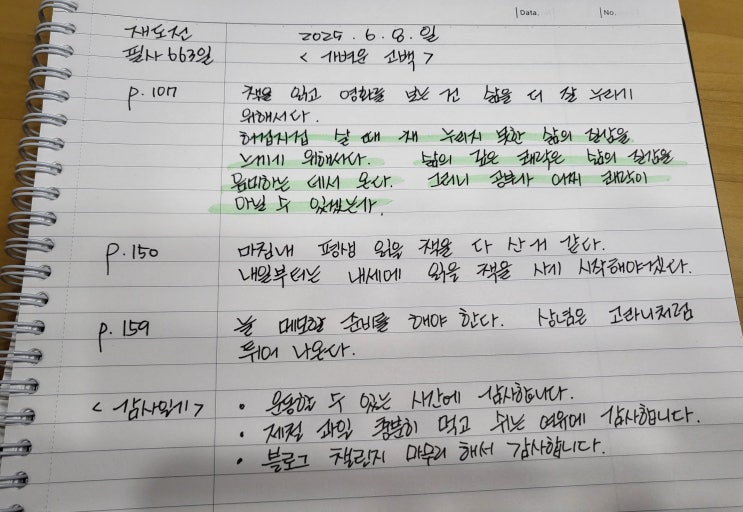 Data.
No.
재도전 2025. 6. 8. 일
필사 663일 < 가벼운 고백 >
p. 107 책을 읽고 영화를 보는 건 삶을 더 잘 누리기
위해서다.
허겁지겁 살 때 채 누리지 못한 삶의 질감을
느끼기 위해서다. 삶의 깊은 쾌락은 삶의 질감을
음미하는 데서 온다. 그러니 공부가 어찌 쾌락이
아닐 수 있겠는가.
p. 150 마침내 평생 읽을 책을 다 산 거 같다.
내일부터는 내세에 읽을 책을 사기 시작해야겠다.
p. 159 늘 메모할 준비를 해야 한다. 상념은 고라니처럼
튀어 나온다.
< 감사일기 > • 운동할 수 있는 시간에 감사합니다.
• 제철 과일 충분히 먹고 쉬는 여유에 감사합니다.
• 블로그 챌린지 마무리 해서 감사합니다.